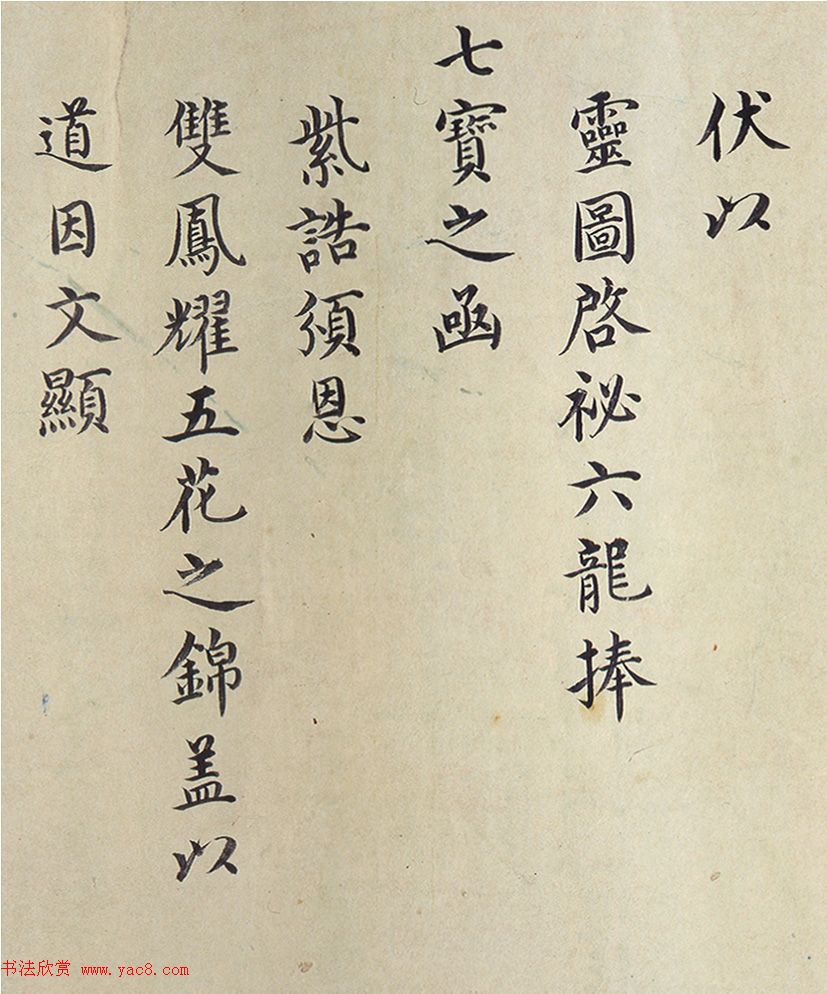 伏以
靈圖啓祕六龍捧
七寶之函
紫誥須恩
雙鳳耀五花之錦盖以
道因文顯
书法欣赏 www.yac8.com